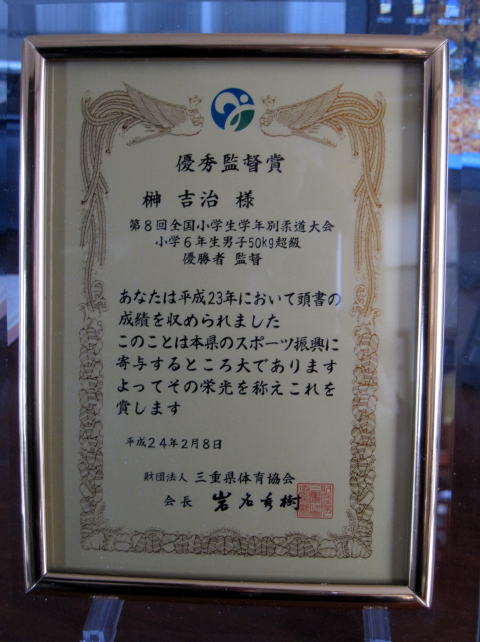 優秀監督賞
榊 吉治 様
第8回全国小学生学年別柔道大会
小学6年生男子50kg超級
優勝者 監督
あなたは平成23年において頭書の
成績を収められました
このことは本県のスポーツ振興に
寄与するところ大であります
よってその栄光を称えこれを
賞します
平成24年2月8日
財団法人 三重県体育協会
会長 岩名秀樹